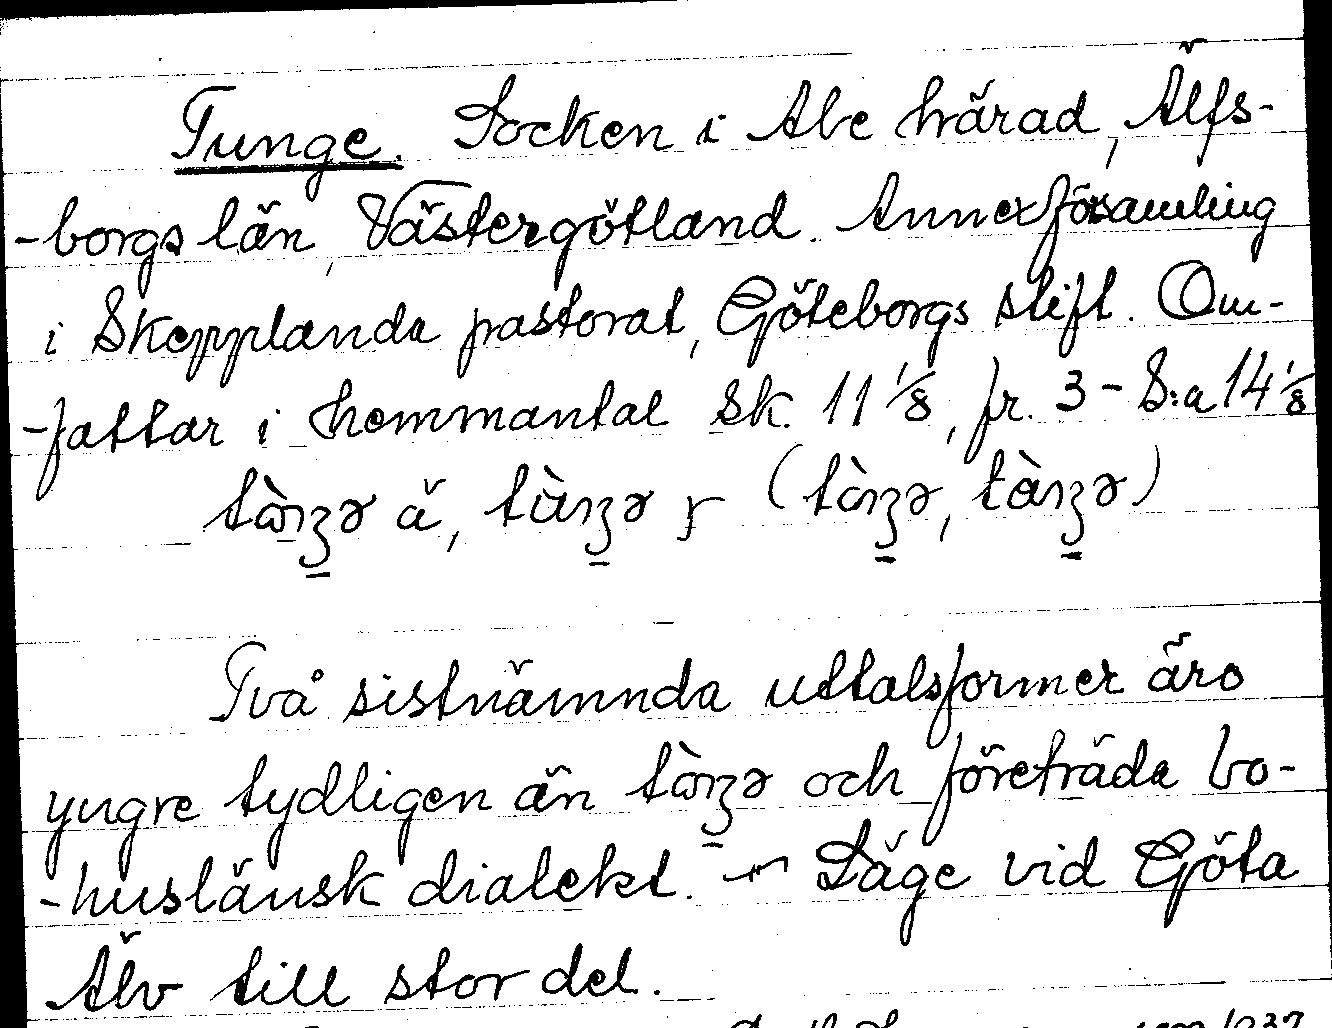 Tunge. Socken i Ale härad, Älfs-
-borgs län, Västergötland. Annexförsamling
i Skepplanda pastorat, Göteborgs stift. Om-
-fattar i hemmantal sk. 11 1/8, fr. 3 - S:a 14 1/8
Två sistnämnda uttalsformer äro
yngre tydligen än och företräda bo-
-huslänsk dialekt. — Läge vid Göta
Älv till stor del.